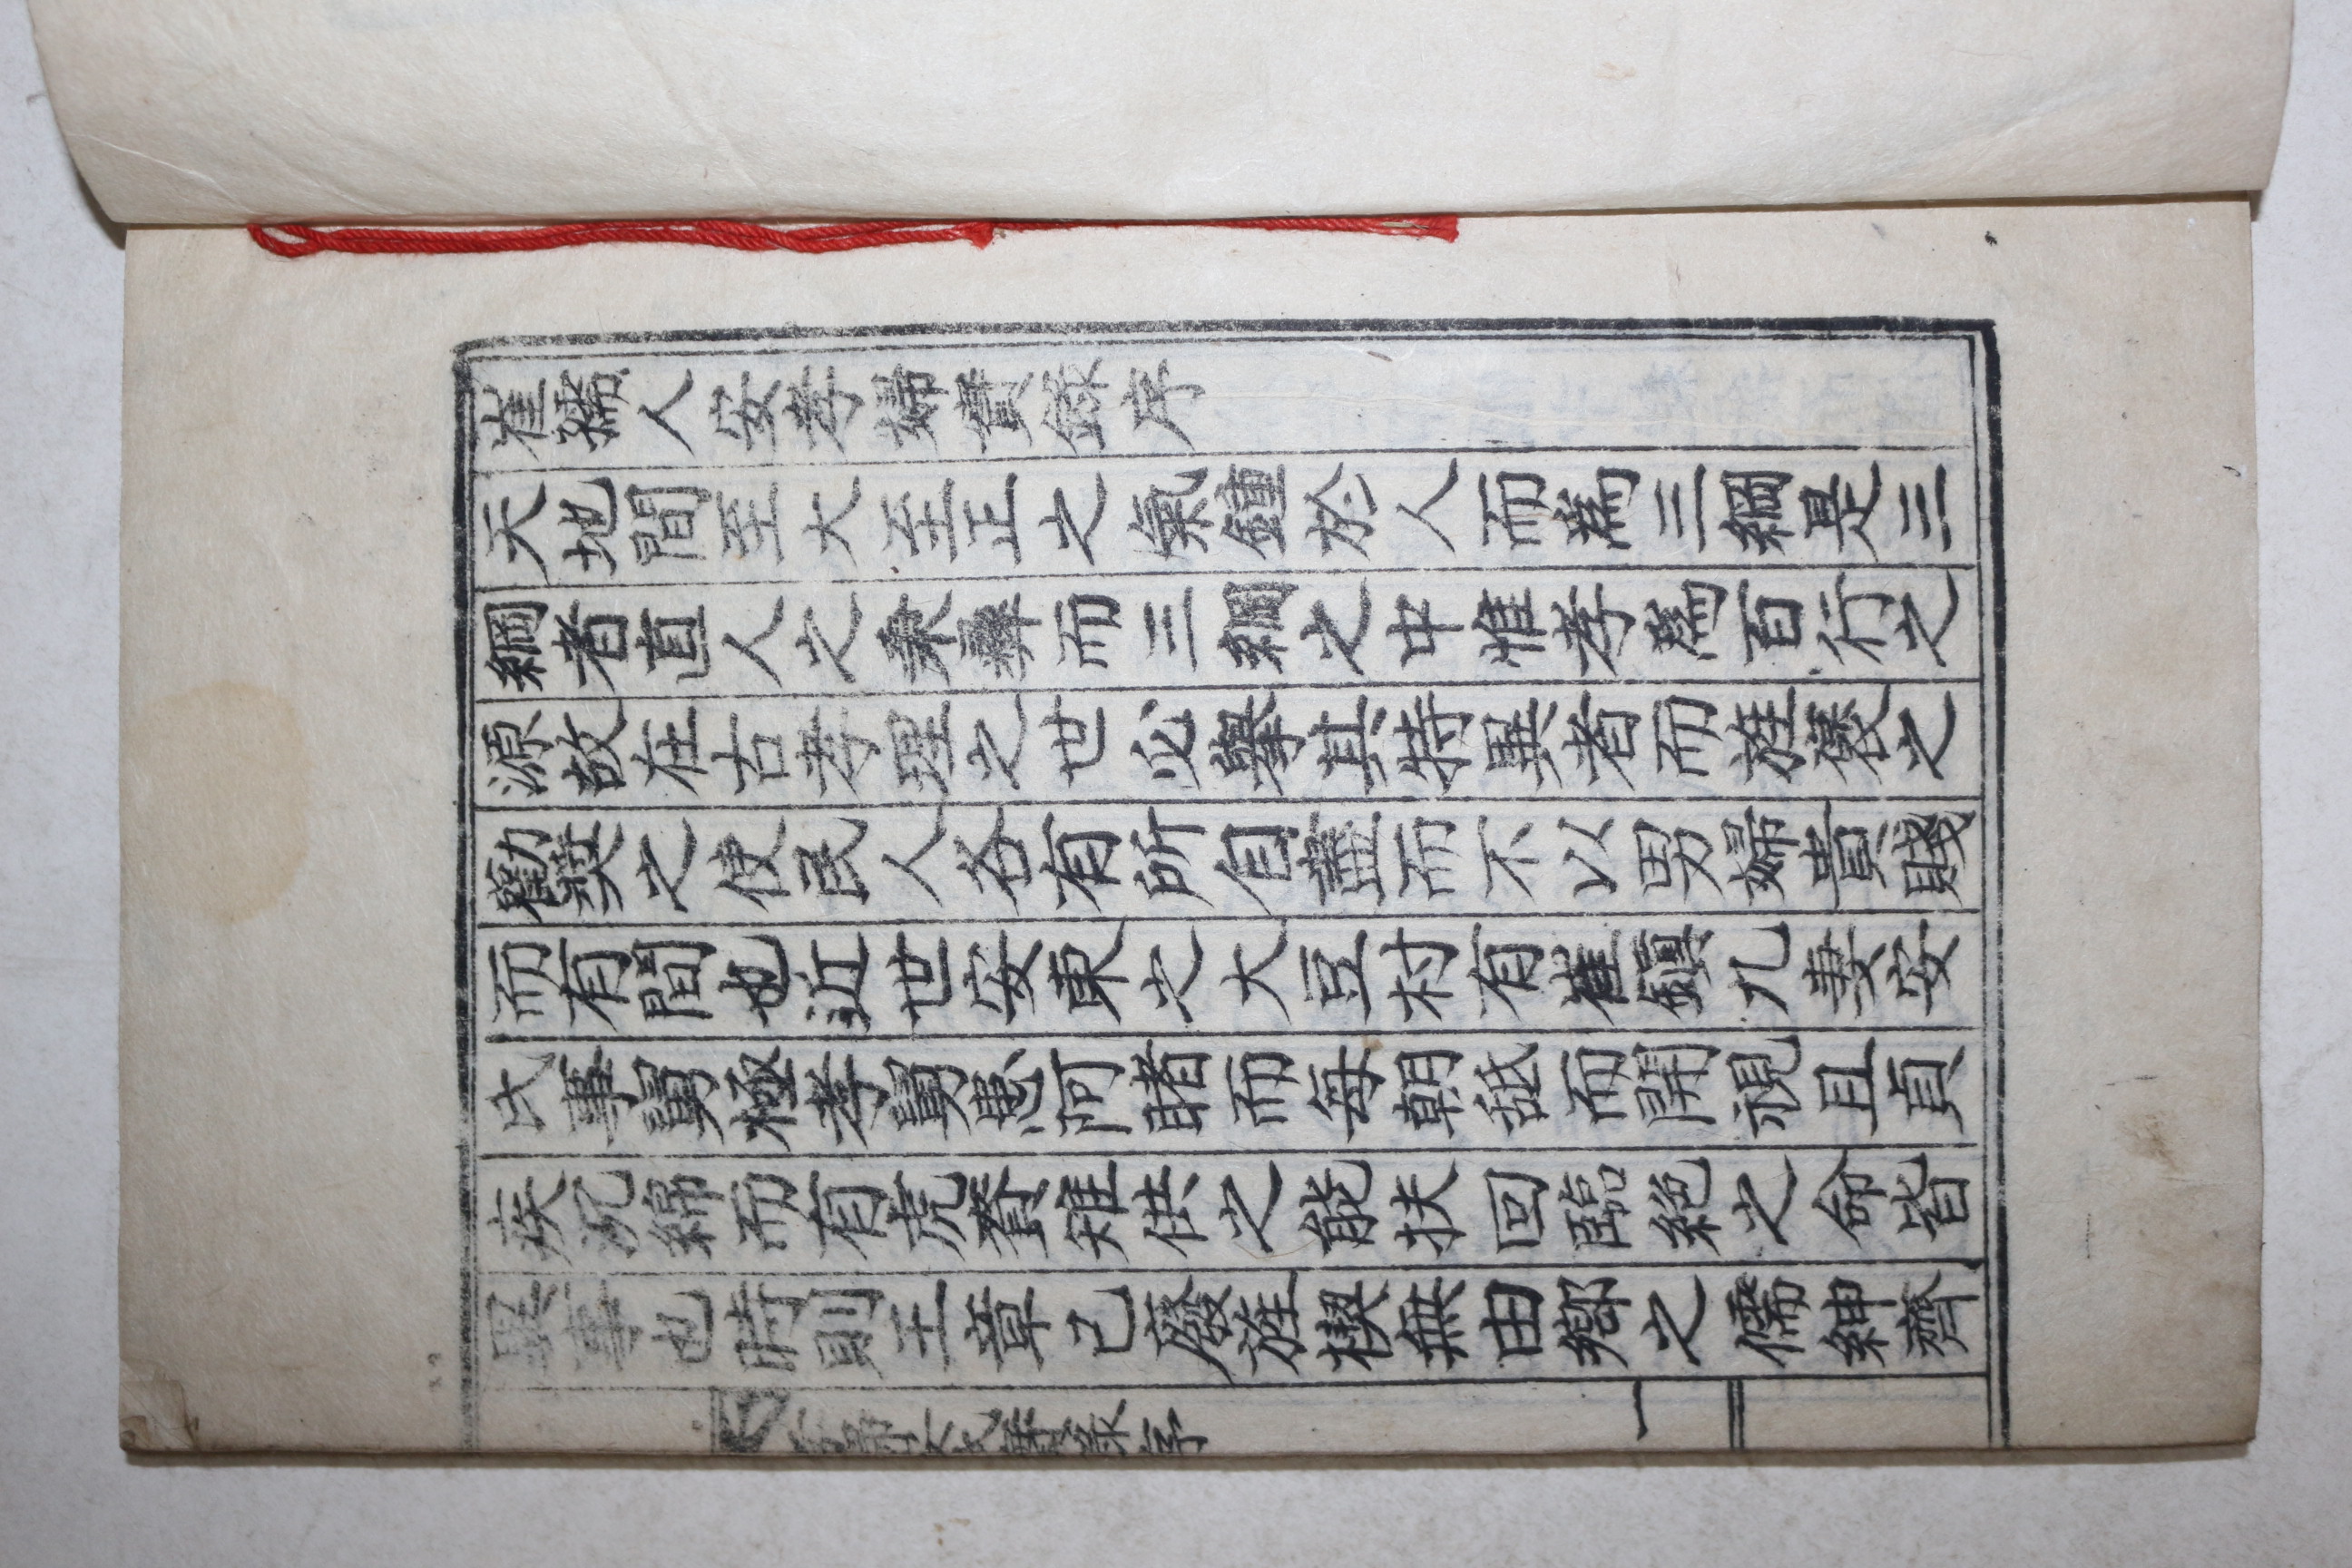 崔孺人安孝婦實錄序
天地間至大至正之氣鍾於人而爲三綱是三
綱者直人之秉彛而三綱之中惟孝爲百行之
源故在古孝理之世必擧其特異者而旌褒之
勸奬之使民人各有所自盡而不以男婦貴賤
而有間也近世安東之大豆村有崔鎭九妻安
氏事舅極孝舅患阿睹而每朝舐而開視且貞
疾沉綿而有虎賚雉供之能扶回臨絶之命皆
異事也時則王章已廢旌楔無由鄕之儒紳齊
一